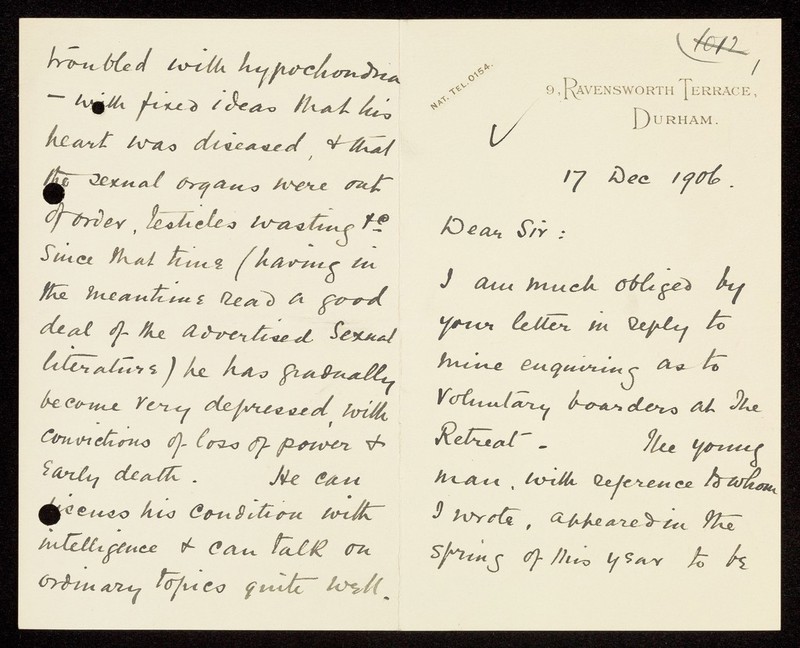 1012
1
NAT. TEL. 0154.
9, RAVENSWORTH TERRACE,
DURHAM.
17 Dec 1906.
Dear Sir:
I am much obliged by
your letter in reply to
mine enquiring as to
Voluntary boarders at The
Retreat - The young
man, with reference to whom
I wrote, appeared in the
spring of this year to be
troubled with hypochondria
- with fixed ideas that his
heart was diseased, & that
the sexual organs were out
of order, testicles wasting &c
Since that time (having in
the meantime read a good
deal of the advertised Sexual
literature) he has gradually
become very depressed, with
convictions of loss of power &
early death. He can
discuss his condition with
intelligence & can talk on
ordinary topics quite well.